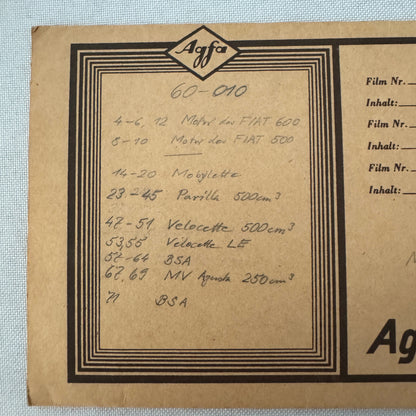 Agfa
60-010
4-6, 12 Motor des FIAT 600
8-10 Motor des FIAT 500
14-20 Mobylette
23-45 Parilla 500cm³
47-51 Velocette 500cm³
53,55 Velocette LE
57-64 BSA
67,69 MV Agusta 250cm³
71 BSA
Film Nr.
Inhalt:
Film Nr.
Inhalt:
Film Nr.
Inhalt:
Ag